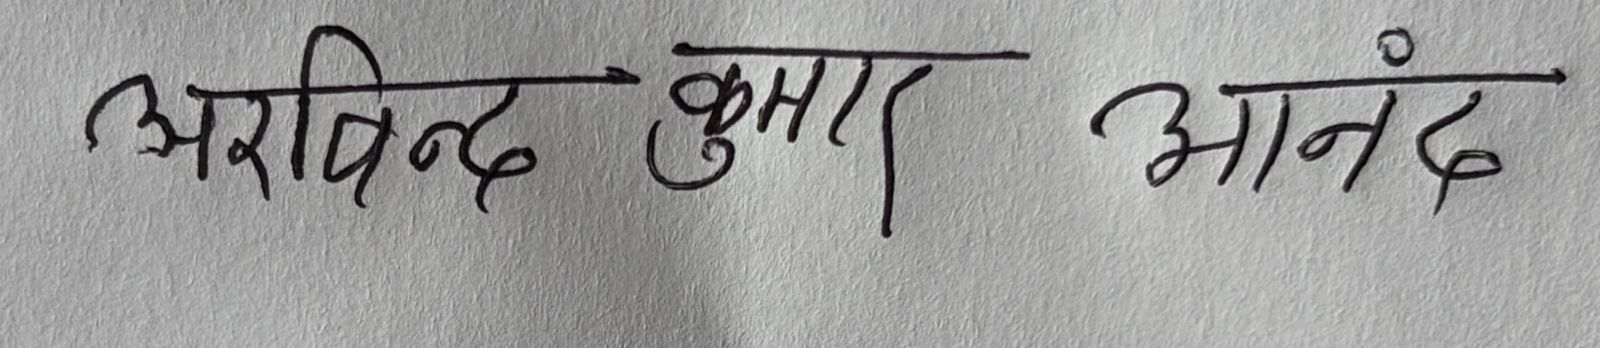 अरविन्द कुमार आनंद